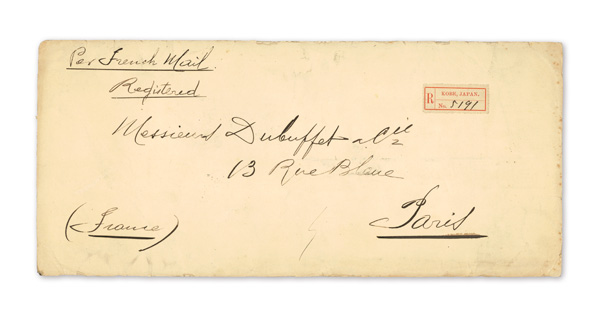 Per French Mail.
Registered
R KOBE, JAPAN.
No. 5191
Messieurs Dubuffet & Cie
13 Rue Bleue
Paris
(France)